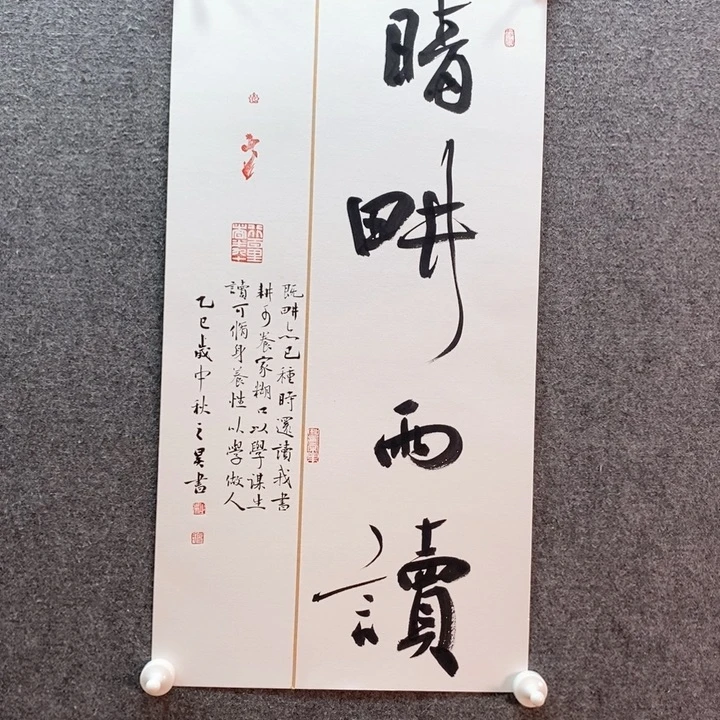 晴畊雨讀
既畊亦已種時還讀我書
耕可養家糊口以學謀生
讀可脩身養性以學做人
乙巳歲中秋之昊書